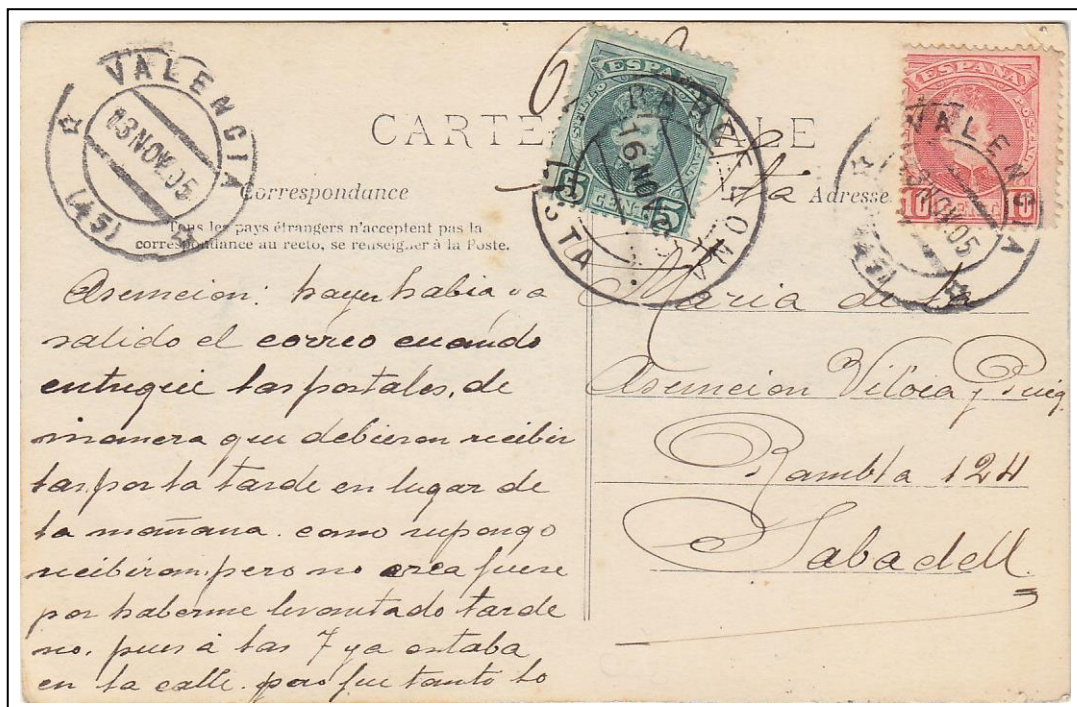 VALENCIA
13 NOV. 05
(45)
ESPAÑA
5 CENT 5
BARCELONA
16 NOV
LISTA
ESPAÑA
10 CENT 10
VALENCIA
13 NOV. 05
(45)
CARTE POSTALE
Correspondance
Adresse
Tous les pays étrangers n'acceptent pas la
correspondance au recto, se renseigner à la Poste.
Asuncion: hayer habia ya
salido el correo cuando
entregué las postales, de
manera que debieron recibir
las por la tarde en lugar de
la mañana. como supongo
recibiran, pero no crea fuese
por haberme levantado tarde
no. pues á las 7 ya estaba
en la calle. pero fue tanto lo
Sta
Maria de la
Asuncion Viloca y Puig.
Rambla 124
Sabadell